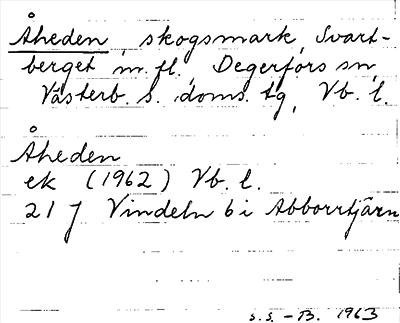 Åheden, skogsmark, Svart-
berget m. fl., Degerfors sn,
Västerb. s. doms. tg, Vb. l.
Åheden
ek (1962) Vb. l.
21 J Vindeln 6 i Abborrtjärn
S.S. - B. 1963